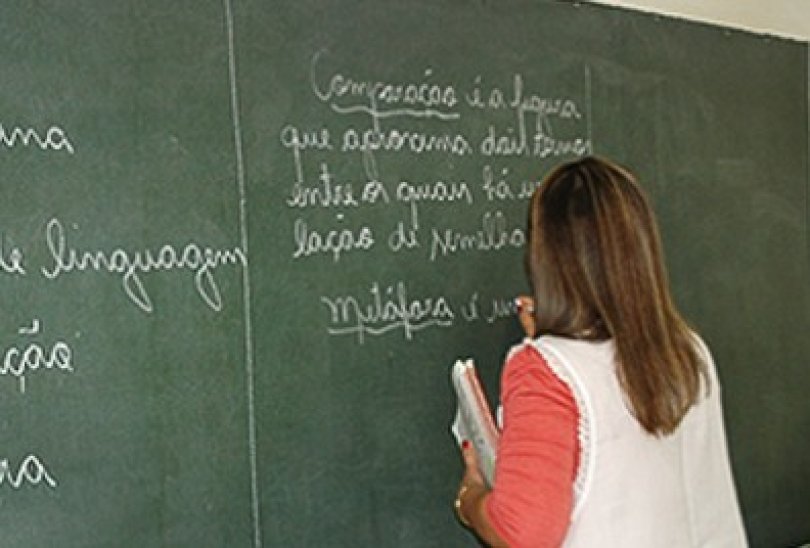 ana
e linguagem
ação
na
Comparação é a figura
que aproxima dois termos
entre os quais há u
lação de semelha
Metáfora é u